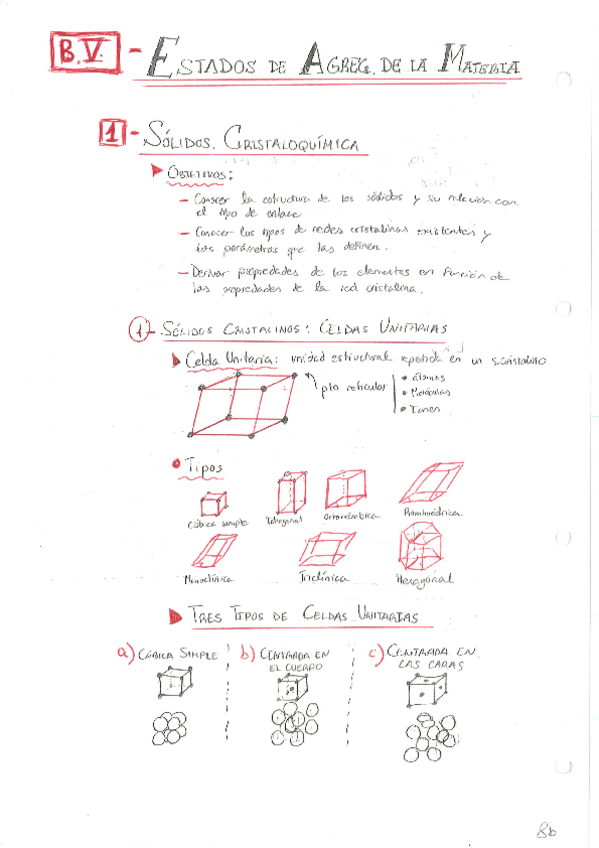 B.V. - ESTADOS DE AGREG. DE LA MATERIA
1 - SÓLIDOS. CRISTALOQUÍMICA
OBJETIVOS:
- Conocer la estructura de los sólidos y su relación con
el tipo de enlace
- Conocer los tipos de redes cristalinas existentes y
los parámetros que las definen.
- Derivar propiedades de los elementos en función de
las propiedades de la red cristalina.
1 - SÓLIDOS CRISTALINOS: CELDAS UNITARIAS
Celda Unitaria: unidad estructural repetida en un s.cristalino
pto reticular
• Átomos
• Moléculas
• Iones
• Tipos
Cúbica simple Tetragonal Ortorrómbica Romboédrica
Monoclínica Triclínica Hexagonal
TRES TIPOS DE CELDAS UNITARIAS
a) CÚBICA SIMPLE b) CENTRADA EN EL CUERPO c) CENTRADA EN LAS CARAS
86